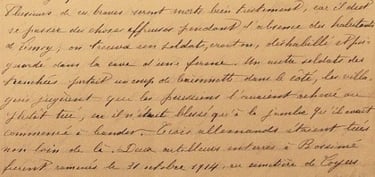 Plusieurs de ces braves seront morts bien tristement, car il s'est
passé des choses affreuses pendant l'absence des habitants
de Cuisy, on trouva un soldat, croit-on, deshabillé et poi-
gnardé dans la cave d'une ferme. Un autre soldat des
tranchées, portait un coup de baionnette dans le côté, les villa-
geois jugèrent que les prussiens l'auraient achevé au
tué, car il n'était blessé qu'à la jambe qu'il avait
commencé à bander. Trois allemands étaient tués
non loin de là. Deux artilleurs enterrés à
furent ramenés le 31 octobre 1914, au cimetière de